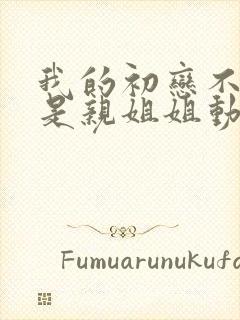 我的初戀不
是親姐姐動
Fumuarunukufa